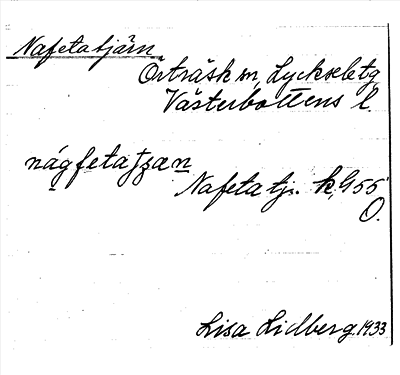 Nafetatjärn
Örträsk sn, Lycksele tg
Västerbottens l.
Nafeta tj. k, G 55
O.
Lisa Lidberg. 1933